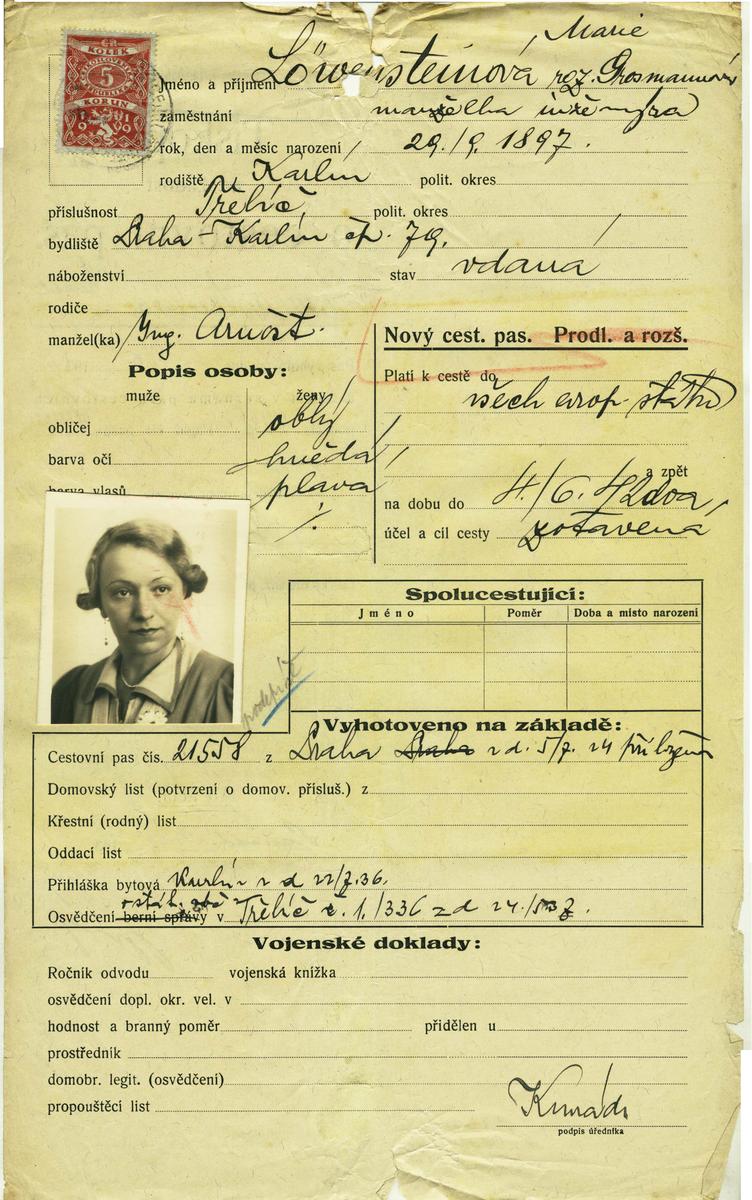 KOLEK
5
KORUN
Marie
Jméno a příjmení Löwensteinová roz. Grosmannová
zaměstnání manželka inženýra
rok, den a měsíc narození 29./9. 1897.
rodiště Karlín polit. okres
příslušnost Třebíč, polit. okres
bydliště Praha-Karlín čp. 79.
náboženství stav vdaná
rodiče
manžel(ka) Ing. Arnošt.
Nový cest. pas. Prodl. a rozš.
Popis osoby:
Platí k cestě do
muže ženy
všech evrop. států
obličej oblý
barva očí hnědá
a zpět
barva vlasů plavá
na dobu do 4./6. 42
účel a cíl cesty zotavená
Spolucestující:
Jméno Poměr Doba a místo narození
podepsat
Vyhotoveno na základě:
Cestovní pas čís. 21558 z Praha Praha z d. 5/7. 24
Domovský list (potvrzení o domov. přísluš.) z
Křestní (rodný) list
Oddací list
Přihláška bytová Karlín z d 22/7.36.
Osvědčení berní správy v Třebíč č. 1./336 z d 24./5
Vojenské doklady:
Ročník odvodu vojenská knížka
osvědčení dopl. okr. vel. v
hodnost a branný poměr přidělen u
prostředník
domobr. legit. (osvědčení)
propouštěcí list
podpis úředníka